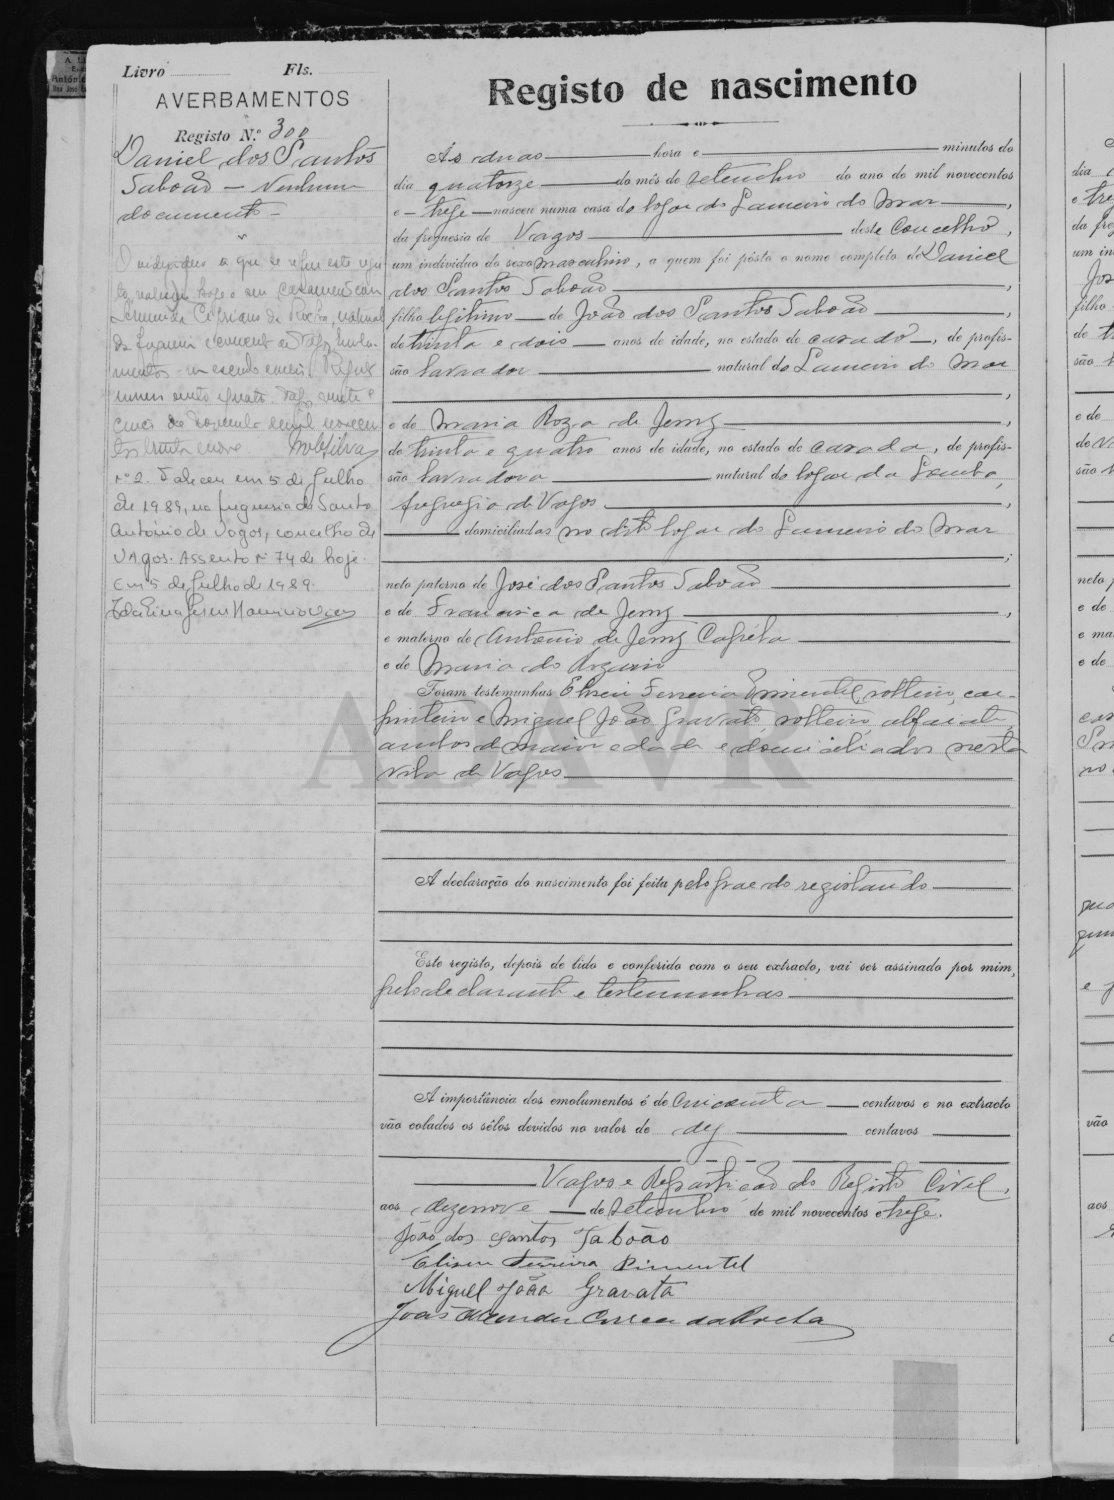 Livro Fls.
AVERBAMENTOS
Registo N.º 300
Daniel dos Santos
Saboão — Nenhum
documento —
O individuo a que se refere este regis
to, realisou hoje o seu casamento com
Cipriano da Rocha, natural
da freguesia e concelho de Vagos
cinco de mil novecen
tos trinta e nove
nº 2. Faleceu em 5 de Julho
de 1989, na freguesia de Santo
António de Vagos, concelho de
Vagos. Assento nº 74 de hoje.
Em 5 de Julho de 1989.
Registo de nascimento
Ás duas hora e minutos do
dia quatorze do mês de setembro do ano de mil novecentos
e treze nasceu numa casa do logar do Lameiro do Mar,
da freguesia de Vagos deste Concelho,
um individuo do sexo masculino, a quem foi pôsto o nome completo de Daniel
dos Santos Saboão,
filho legitimo de João dos Santos Saboão,
de trinta e dois anos de idade, no estado de casado, de profis-
são lavrador natural do Lameiro do Mar
,
e de Maria Roza de Jesus,
de trinta e quatro anos de idade, no estado de casada, de profis-
são lavradora natural do logar da Lomba,
freguezia de Vagos,
domiciliados no dito logar do Lameiro do Mar
;
neto paterno de José dos Santos Saboão
e de Francisca de Jesus,
e materno de Antonio de Jesus Capéla
e de Maria do Rozario
Foram testemunhas Eliseu Ferreira Pimentel, solteiro, car-
pinteiro e Miguel João Gravato, solteiro, alfaiate,
ambos de maior edade e domiciliados nesta
vila de Vagos
ADAVR
A declaração do nascimento foi feita pelo pae do registando
Este registo, depois de lido e conferido com o seu extracto, vai ser assinado por mim,
pelo declarante e testemunhas
A importância dos emolumentos é de cincoenta centavos e no extracto
vão colados os sêlos devidos no valor de dez centavos
Vagos e Repartição do Registo Civil,
aos dezenove de setembro de mil novecentos e treze.
João dos Santos Saboão
Eliseu Ferreira Pimentel
Miguel João Gravata
João Correa da Rocha